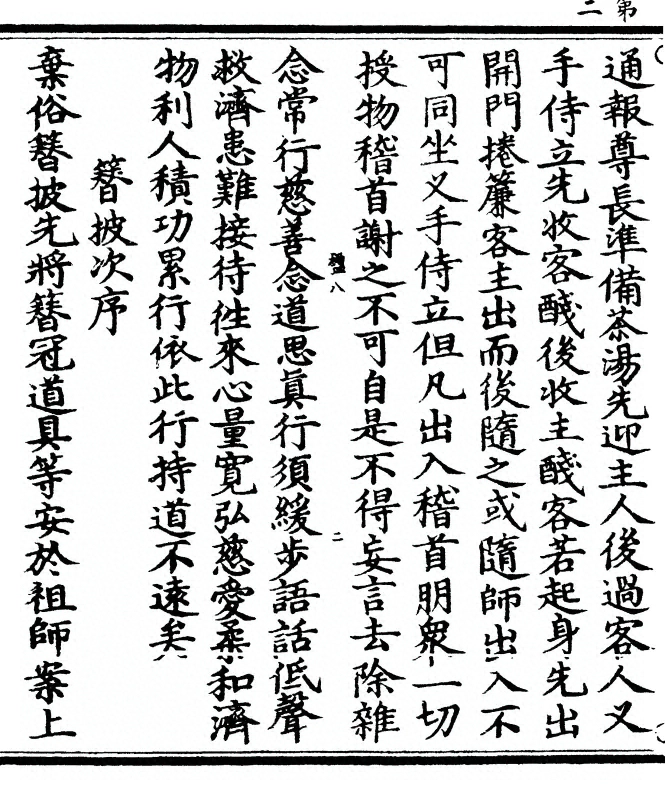 第二
通報尊長準備茶湯先迎主人後過客人叉
手侍立先收客醆後收主醆客若起身先出
開門捲簾客主出而後隨之或隨師出入不
可同坐叉手侍立但凡出入稽首朋衆一切
授物稽首謝之不可自是不得妄言去除雜
二
念常行慈善念道思眞行須緩步語話低聲
救濟患難接待徃來心量寛弘慈愛柔和濟
物利人積功累行依此行持道不遠矣
簪披次序
棄俗簪披先將簪冠道具等安於祖師案上